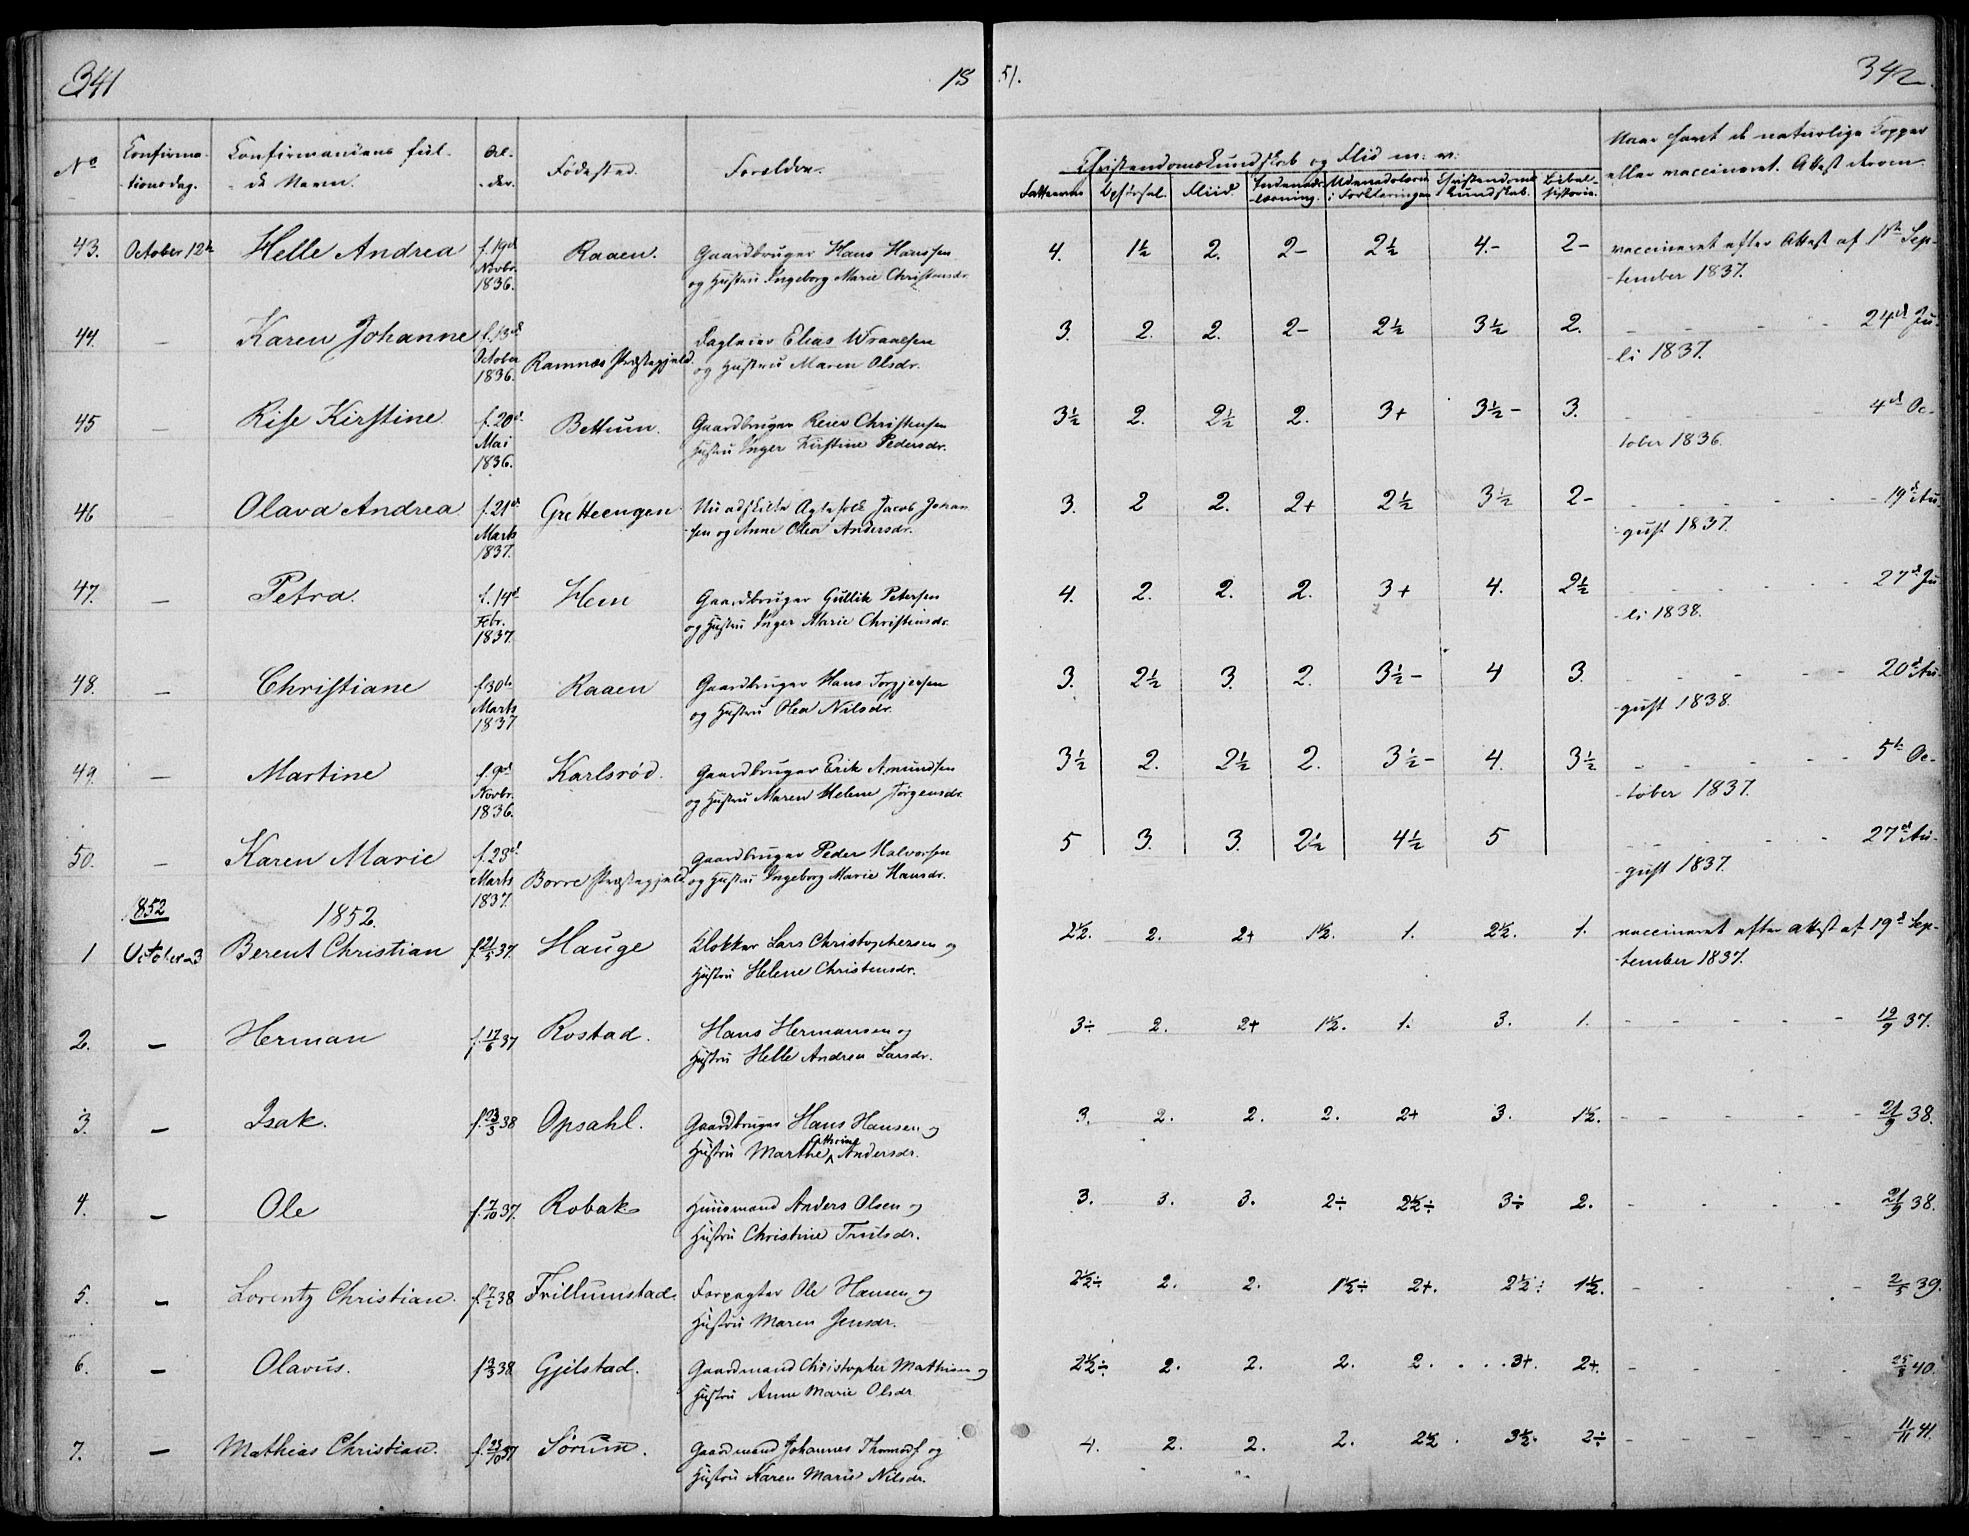 341
18
51.
342.
No
Confirma-
-tionsdag.
Confirmandens ful-
-de Navn.
Al-
-der.
Fødested.
Forældre.
Christendomskundskab og Flid m: v:
Fatteevne
Opførsel.
Fliid.
Indenads-
-læsning.
Udenadslæsn
i Forklaringen
Christendoms
kundskab.
Bibel-
historie.
Naar havt de naturlige Kopper
eller vaccineret. Attest derom.
43. October 12te Helle Andrea f. 19de Novbr. 1836. Raaen. Gaardbruger Hans Hanssen 4. 1½ 2. 2- 2½ 4.- 2- vaccineret efter Attest af 11te Sep-
og Hustru Ingeborg Marie Christensdr. -tember 1837.
44. — Karen Johanne f. 13de October 1836. Ramnæs Præstegjeld. Dagleier Elias Wraalsen 3. 2. 2. 2- 2½ 3½ 2. - - - - 24de Ju-
og Hustru Maren Olsdr. -li 1837.
45 — Rise Kirstine f. 20de Mai 1836. Bettum. Gaardbruger Reier Christensen 3½ 2. 2½ 2. 3+ 3½- 3. - - - - 4de Oc-
Hustru Inger Kirstine Pedersdr. tober 1836.
46 Olava Andrea f. 21de Marts 1837. Gretteengen Uadskilte Ægtefolk Jacob Johan- 3. 2 2. 2+ 2½ 3½ 2- - - - - 19de Au-
-sen og Anne Olea Andersdr. -gust 1837.
47. — Petra. f. 14de Febr. 1837. Hem Gaardbruger Gullik Petersen 4. 2. 2. 2. 3+ 4. 2½ - - - - 27de Ju-
og Hustru Inger Marie Christensdr. -li 1838.
48. — Christiane f. 30te Marts 1837 Raaen Gaardbruger Hans Torgjersen 3. 2½ 3. 2. 3½- 4 3. - - - - 20de Au-
og Hustru Olea Nilsdr. -gust 1838.
49. — Martine f. 9de Novbr. 1836. Karlsrød. Gaardbruger Erik Amundsen 3½ 2. 2½ 2. 3½- 4. 3½ - - - - 5te Oc-
og Hustru Maren Helene Jørgensdr. -tober 1837.
50. — Karen Marie f. 23de Marts 1837. Borre Præstegjeld. Gaardbruger Peder Halvorsen 5 3. 3. 2½ 4½ 5 - - - - 27de Au-
og Hustru Ingeborg Marie Hansdr. -gust 1837.
1852 1852.
1 October 3 Berent Christian f. 21/5 37. Hauge Klokker Lars Christophersen og 2½. 2. 2+ 1½. 1. 2½. 1. vaccineret efter attest af 19de Sep-
Hustru Helene Christensdr. -tember 1837.
2. — Herman f. 17/6 37 Rostad. Hans Hermansen og 3÷ 2. 2+ 1½. 1. 3. 1. - - - - - 19/9 37.
Hustru Helle Andrea Larsdr.
3. — Isak. f. 23/3 38 Opsahl. Gaardbruger Hans Hansen og 3. 2. 2. 2. 2+ 3. 1½. - - - - - 21/9 38.
Hustru Marthe Cathrine Andersdr.
4. — Ole f. 7/10 37. Robak Huusmand Anders Olsen og 3. 3. 3. 2÷ 2½÷ 3÷ 2. - - - - - 21/9 38.
Hustru Christine Trulsdr.
5. — Lorentz Christian. f. 7/2 38 Frillumstad. Forpagter Ole Hansen og 2½÷ 2. 2. 1½÷ 2+. 2½÷ 1½. - - - - - 2/5 39.
Hustru Maren Jensdr.
6. — Olavus. f 2/3 38 Gjilstad. Gaardmand Christopher Mathisen og 2½÷ 2. 2. 2. 2. 3+. 2+. - - - - - 25/8 40.
Hustru Anne Marie Olsdr.
7. — Mathias Christian. f. 23/10 37 Sørum. Gaardmand Johannes Thormodf og 4. 2. 2. 2. 2½. 3½. 2÷ - - - - - 11/11 41.
Hustru Karen Marie Nilsdr.